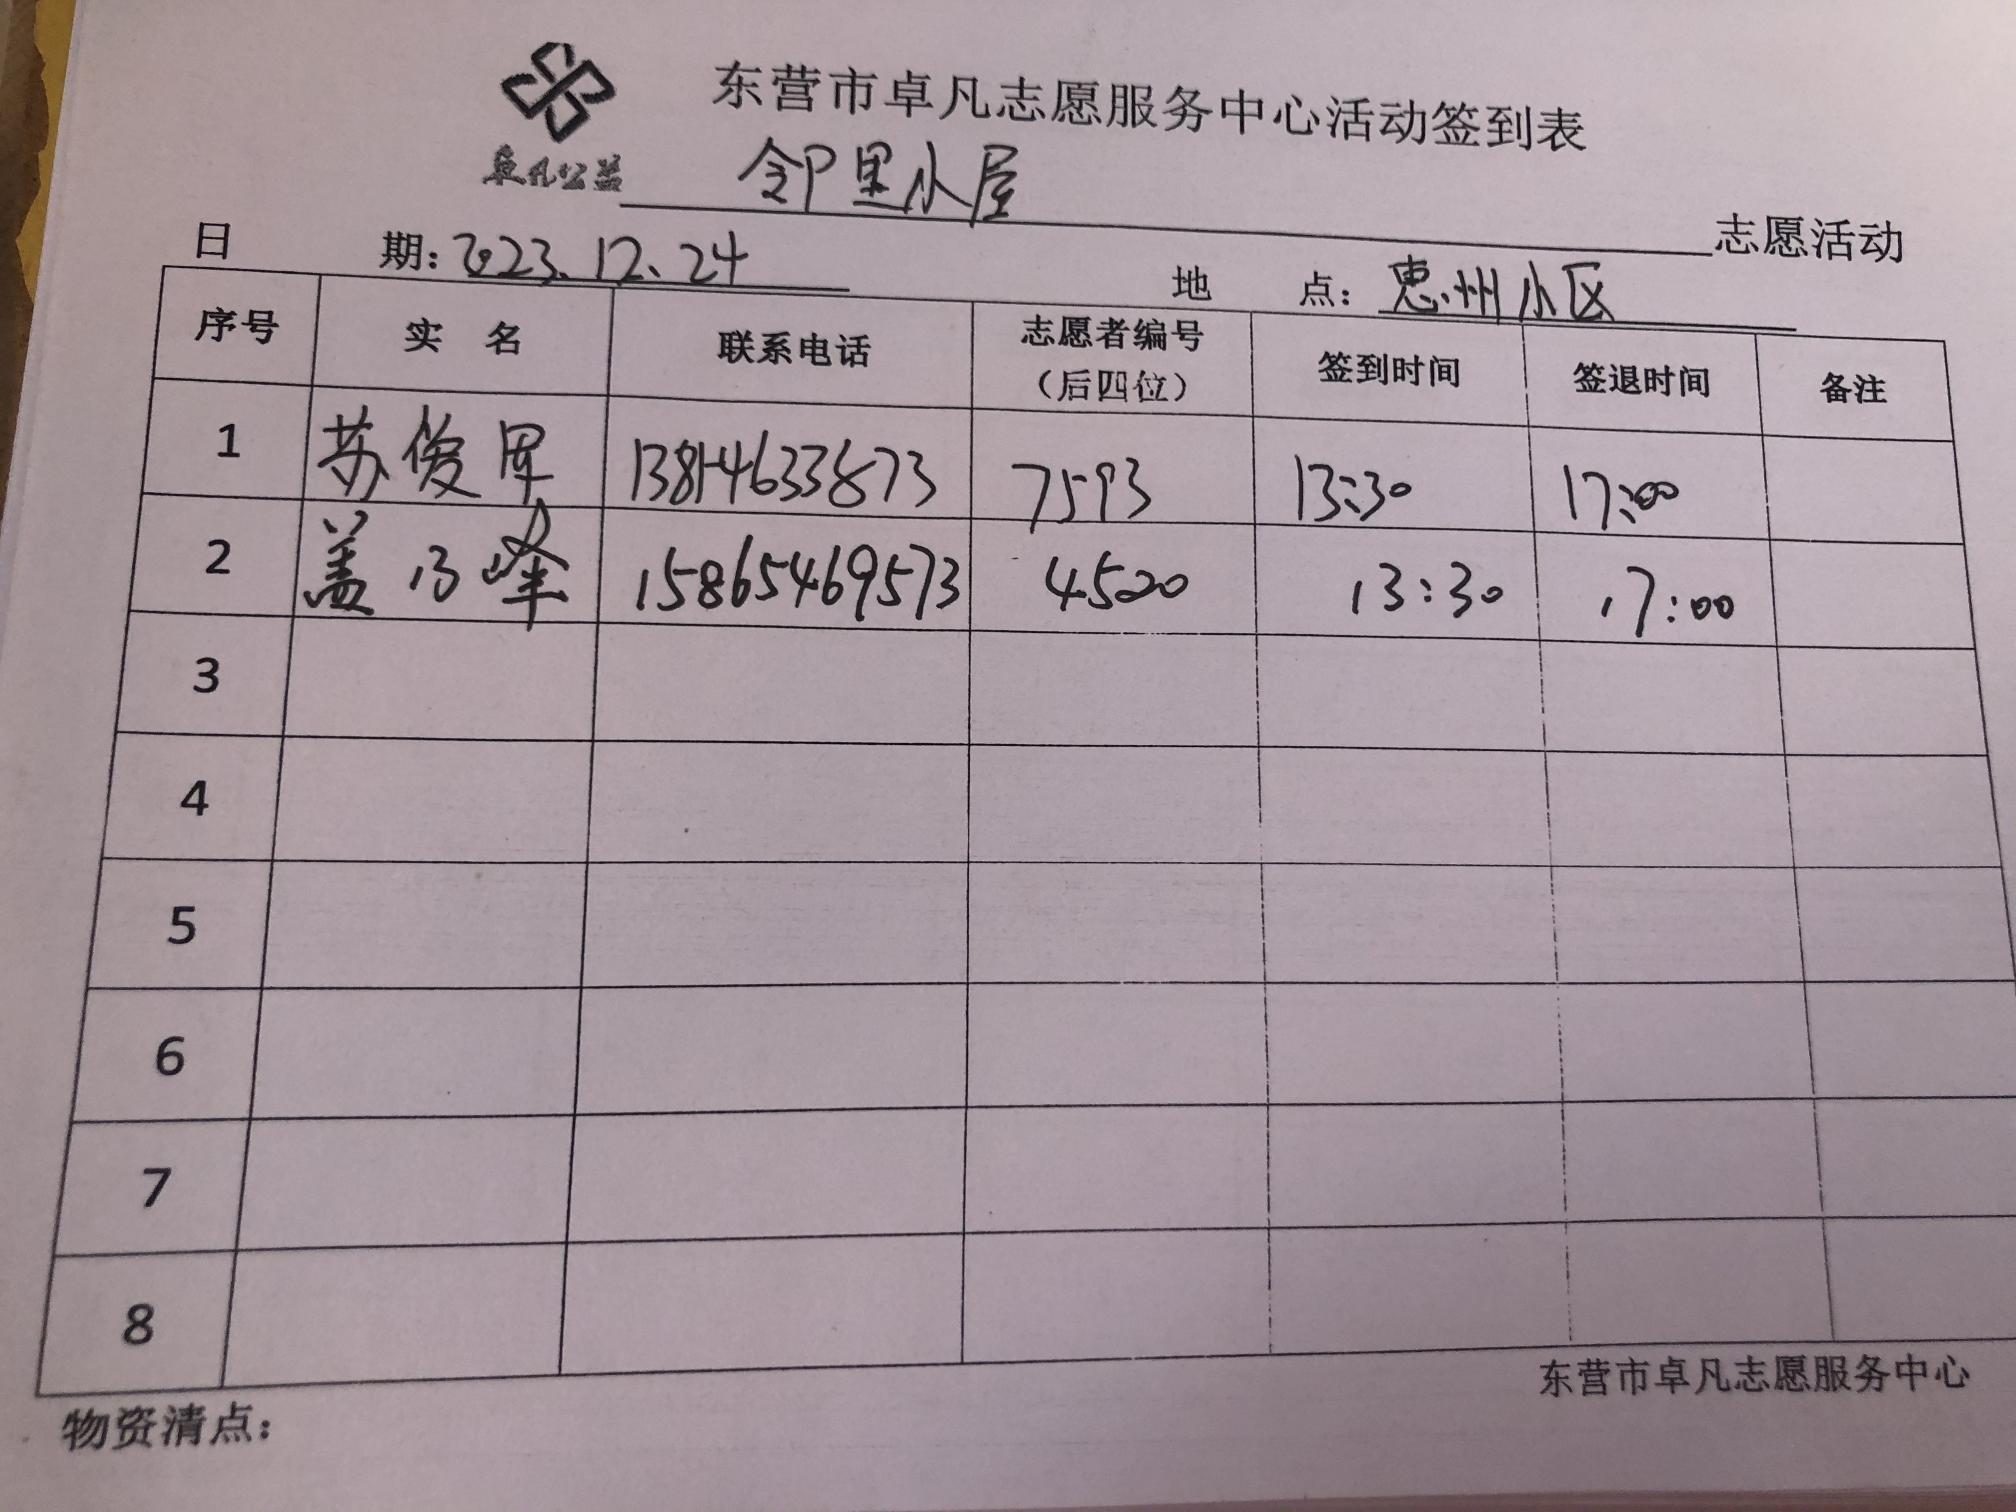 东营市卓凡志愿服务中心活动签到表
卓凡公益 邻里小屋 志愿活动
日 期：2023.12.24 地 点：惠州小区
序号 实 名 联系电话 志愿者编号（后四位） 签到时间 签退时间 备注
1 苏俊军 13814633873 7593 13:30 17:00
2 盖乃峰 15865469573 4520 13:30 17:00
3
4
5
6
7
8
东营市卓凡志愿服务中心
物资清点：